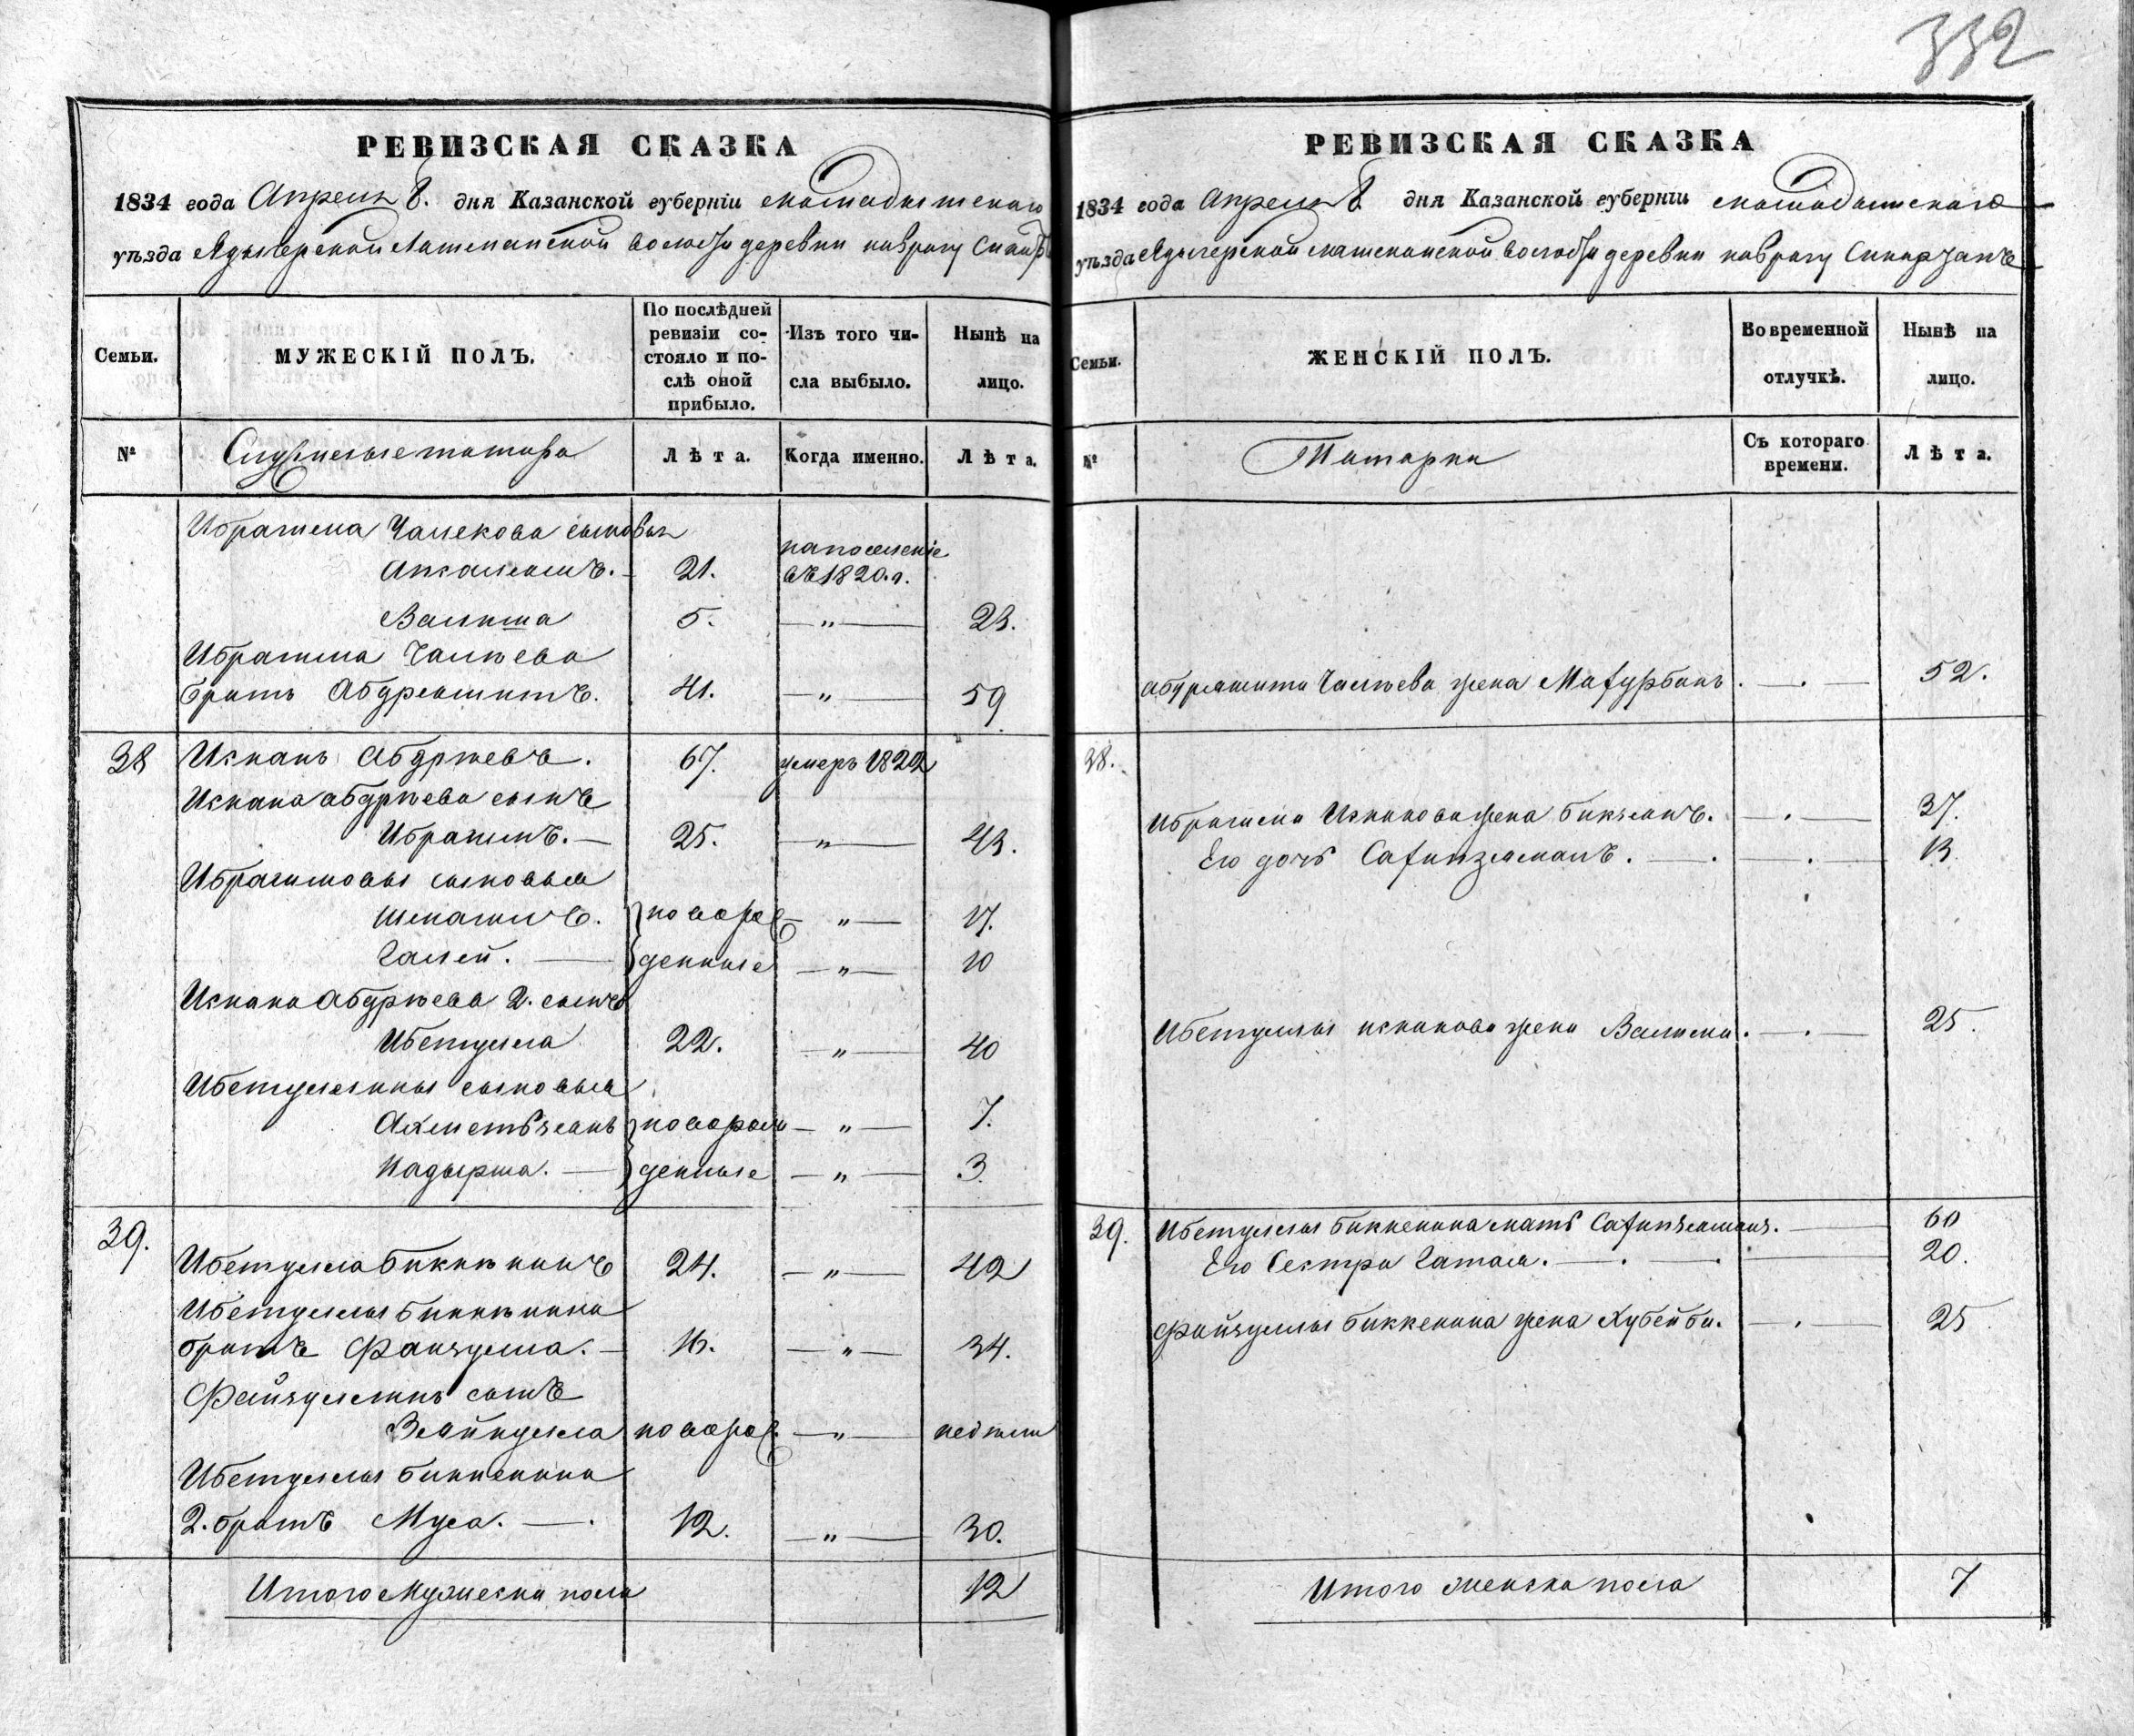 332
РЕВИЗСКАЯ СКАЗКА
1834 года Апреля 8. дня Казанской губерніи Мамадышскаго
уѣзда волости деревни
Семьи.
МУЖЕСКІЙ ПОЛЪ.
По послѣдней ревизіи состояло и послѣ оной прибыло.
Изъ того числа выбыло.
Нынѣ на лицо.
№
Служилые татара
Лѣта.
Когда именно.
Лѣта.
Ибрагима сыновья
21. на поселеніе въ 1820.г.
Валиша 5. — " — 23.
Ибрагима
братъ Абдрашитъ. 41. — " — 59
38 Искакъ Абдряевъ. 67. умеръ 1822
Искака Абдряева сынъ
Ибрагимъ. — 25. — " — 43.
Ибрагимовы сыновья
новорож — " — 17.
Галей. — денные — " — 10
Искака Абдряева 2. сынъ
Ибетулла 22. — " — 40
Ибетуллины сыновья
Ахметьянъ новорож — " — 7.
Кадырша. — денные — " — 3.
39. Ибетулла Биккининъ 24. — " — 42
Ибетуллы Биккинина
братъ Файзулла. — 16. — " — 34.
Файзуллинъ сынъ
Зейнулла новорож. — " — недели
Ибетуллы Биккенина
2. братъ Муса. — . 12. — " — 30.
Итого Мужеска пола 12
РЕВИЗСКАЯ СКАЗКА
1834 года Апреля 8 дня Казанской губерніи Мамадышскаго
уѣзда волости деревни
Семьи.
ЖЕНСКІЙ ПОЛЪ.
Во временной отлучкѣ.
Нынѣ на лицо.
№
Татарки
Съ котораго времени.
Лѣта.
Абдрашита жена . — . — 52.
38.
Ибрагима Искакова жена . — . — 37.
Его дочь . — . — . — 13
Ибетуллы Искакова жена Валима . — . — 25.
39. Ибетуллы Биккенина мать — 60
Его сестра . — . — . — 20.
Файзуллы Биккенина жена Хубейби. — . — 25
Итого женска пола 7